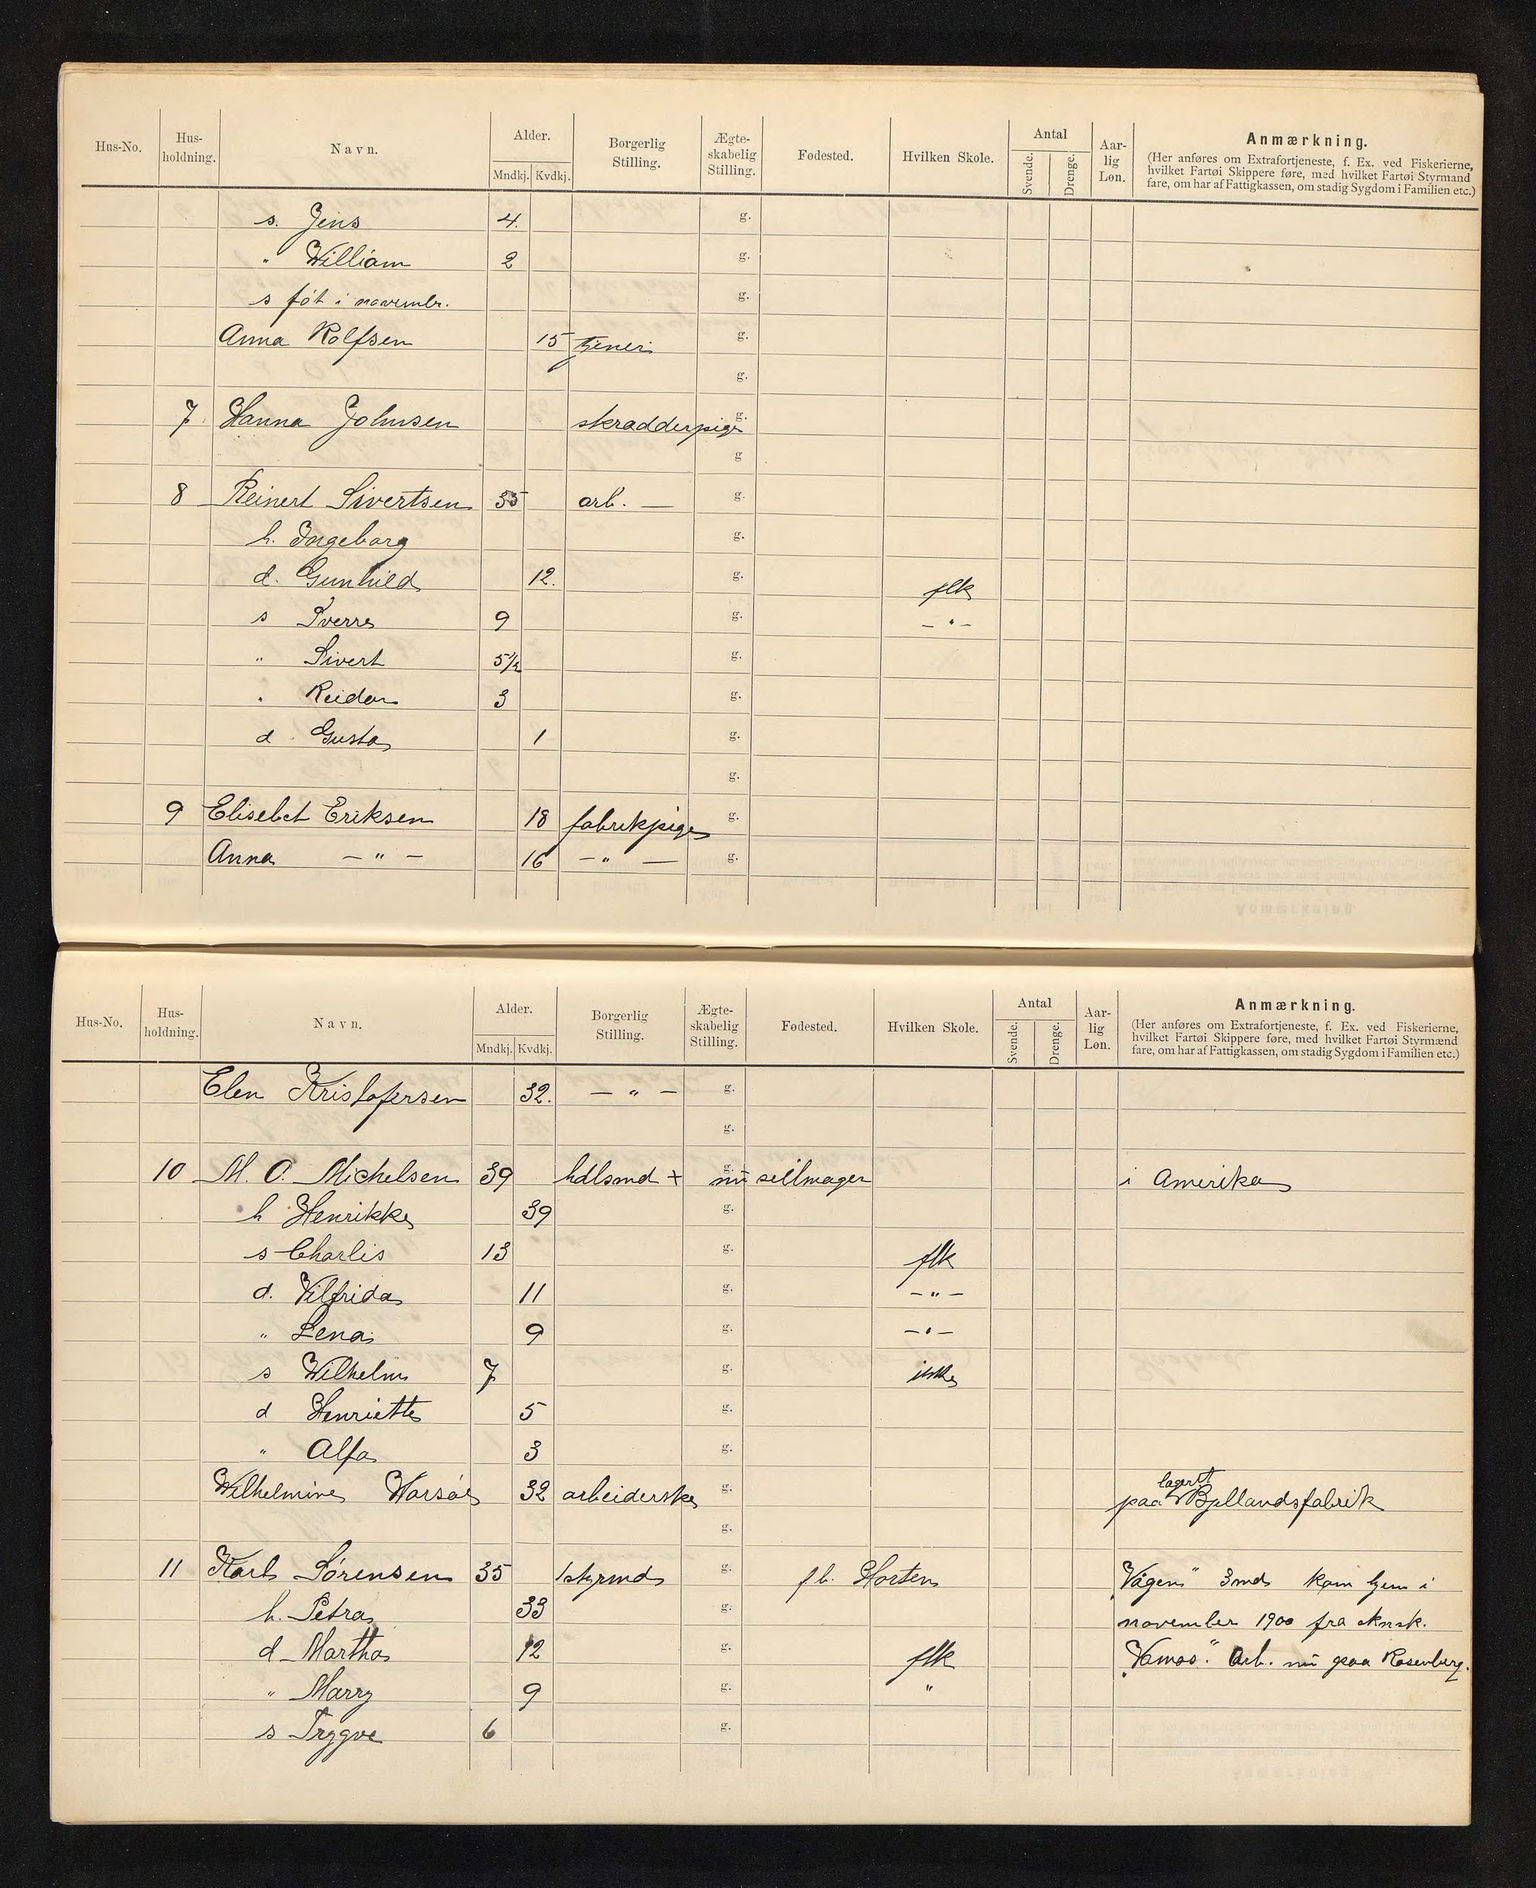 Hus-No. Hus-holdning. Navn. Alder. Mndkj. Kvdkj. Borgerlig Stilling. Ægte-skabelig Stilling. Fødested. Hvilken Skole. Antal Svende. Drenge. Aar-lig Løn. Anmærkning.
(Her anføres om Extrafortjeneste, f. Ex. ved Fiskerierne,
hvilket Fartøi Skippere føre, med hvilket Fartøi Styrmænd
fare, om har af Fattigkassen, om stadig Sygdom i Familien etc.)
s. Jens 4. g.
" William 2 g.
s føt i novembr. g.
Anna Rolfsen 15 tjener g.
g.
7 Hanna Johnsen skradderpige g.
g
8 Reinert Sivertsen 35 arb. — g.
h. Ingeborg g.
d. Gunhild 12. g. flk
s Sverre 9 g. — " —
" Sivert 5½ g.
" Reidar 3 g.
d Gusta 1 g.
g.
9 Elisebet Eriksen 18 fabrikpige g.
Anna — " — 16 — " — g.
Hus-No. Hus-holdning. Navn. Alder. Mndkj. Kvdkj. Borgerlig Stilling. Ægte-skabelig Stilling. Fødested. Hvilken Skole. Antal Svende. Drenge. Aar-lig Løn. Anmærkning.
(Her anføres om Extrafortjeneste, f. Ex. ved Fiskerierne,
hvilket Fartøi Skippere føre, med hvilket Fartøi Styrmænd
fare, om har af Fattigkassen, om stadig Sygdom i Familien etc.)
Elen Kristofersen 32. — " — g.
g.
10 M. O. Michelsen 39 hdlsmd + g. nu seilmager i Amerika
h Henrikke 39 g.
s Charlis 13 g. flk
d. Vilfrida 11 g. — " —
" Lena 9 g. — " —
s Wilhelm 7 g. ikke
d Henriette 5 g.
" Alfa 3 g.
Wilhelmine 32 arbeiderske g. paa lageret Bjellandsfabrik
g.
11 Karl Sørensen 35 1styrmd g. f.b. Horten "Vågen" 3md kom hjem i
h. Petra 33 g. november 1900 fra
d Martha 12 g. flk "Vamos". Arb. nu paa Rosenberg.
" Marry 9 g. "
s Trygve 6 g.